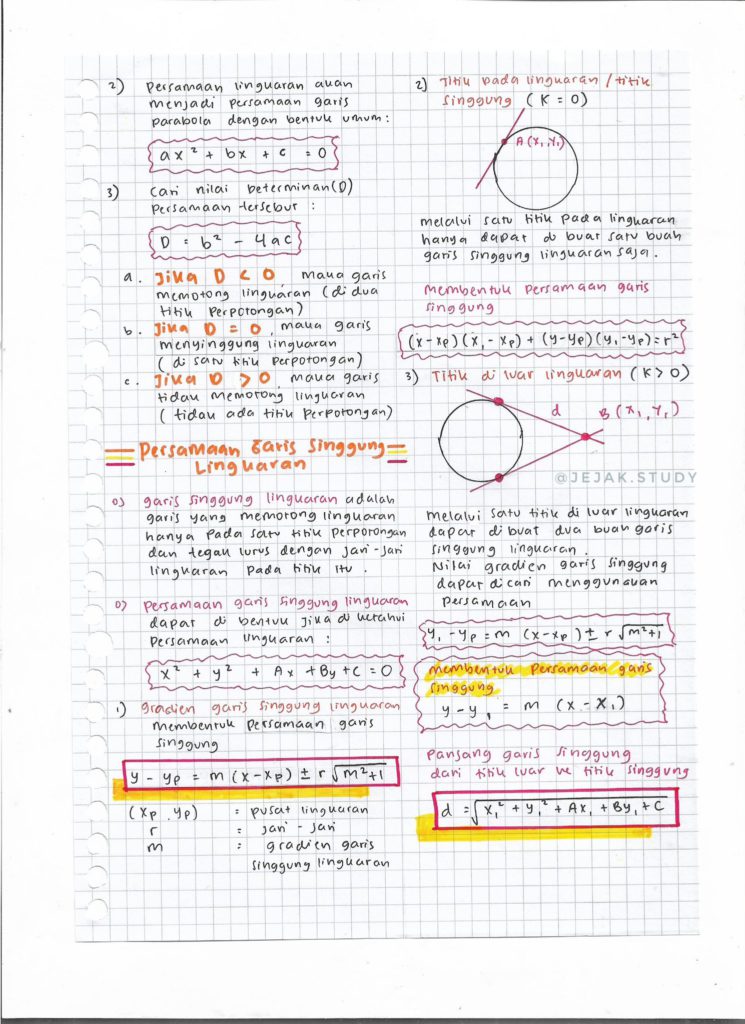 2) Persamaan lingkaran akan
menjadi persamaan garis
parabola dengan bentuk umum:
ax² + bx + c = 0
3) Cari nilai Determinan(D)
Persamaan tersebut :
D = b² - 4ac
a. Jika D < 0, maka garis
memotong lingkaran (di dua
titik Perpotongan)
b. Jika D = 0, maka garis
menyinggung lingkaran
( di satu titik Perpotongan)
c. Jika D > 0, maka garis
tidak memotong lingkaran
( tidak ada titik Perpotongan)
Persamaan Garis Singgung
Lingkaran
0) garis singgung lingkaran adalah
garis yang memotong lingkaran
hanya pada satu titik perpotongan
dan tegak lurus dengan jari-jari
lingkaran pada titik itu.
0) Persamaan garis singgung lingkaran
dapat di bentuk jika diketahui
Persamaan lingkaran :
x² + y² + Ax + By + C = 0
1) gradien garis singgung lingkaran
membentuk persamaan garis
singgung
y - yp = m (x-xp) ± r √m²+1
(xp, yp) = pusat lingkaran
r = jari - jari
m : gradien garis
singgung lingkaran
2) Titik pada lingkaran / titik
singgung ( K = 0)
A (x₁, y₁)
melalui satu titik pada lingkaran
hanya dapat di buat satu buah
garis singgung lingkaran saja.
membentuk persamaan garis
singgung
(x-xp)(x₁-xp) + (y-yp)(y₁-yp)=r²
3) Titik di luar lingkaran (K > 0)
d
B (x₁, y₁)
@JEJAK.STUDY
melalui satu titik di luar lingkaran
dapat dibuat dua buah garis
singgung lingkaran.
Nilai gradien garis singgung
dapat dicari menggunakan
persamaan
y₁ - yp = m (x-xp) ± r √m²+1
membentuk Persamaan garis
singgung
y - y₁ = m (x - x₁)
Pansang garis singgung
dari titik luar ke titik singgung
d = √x₁² + y₁² + Ax₁ + By₁ + C